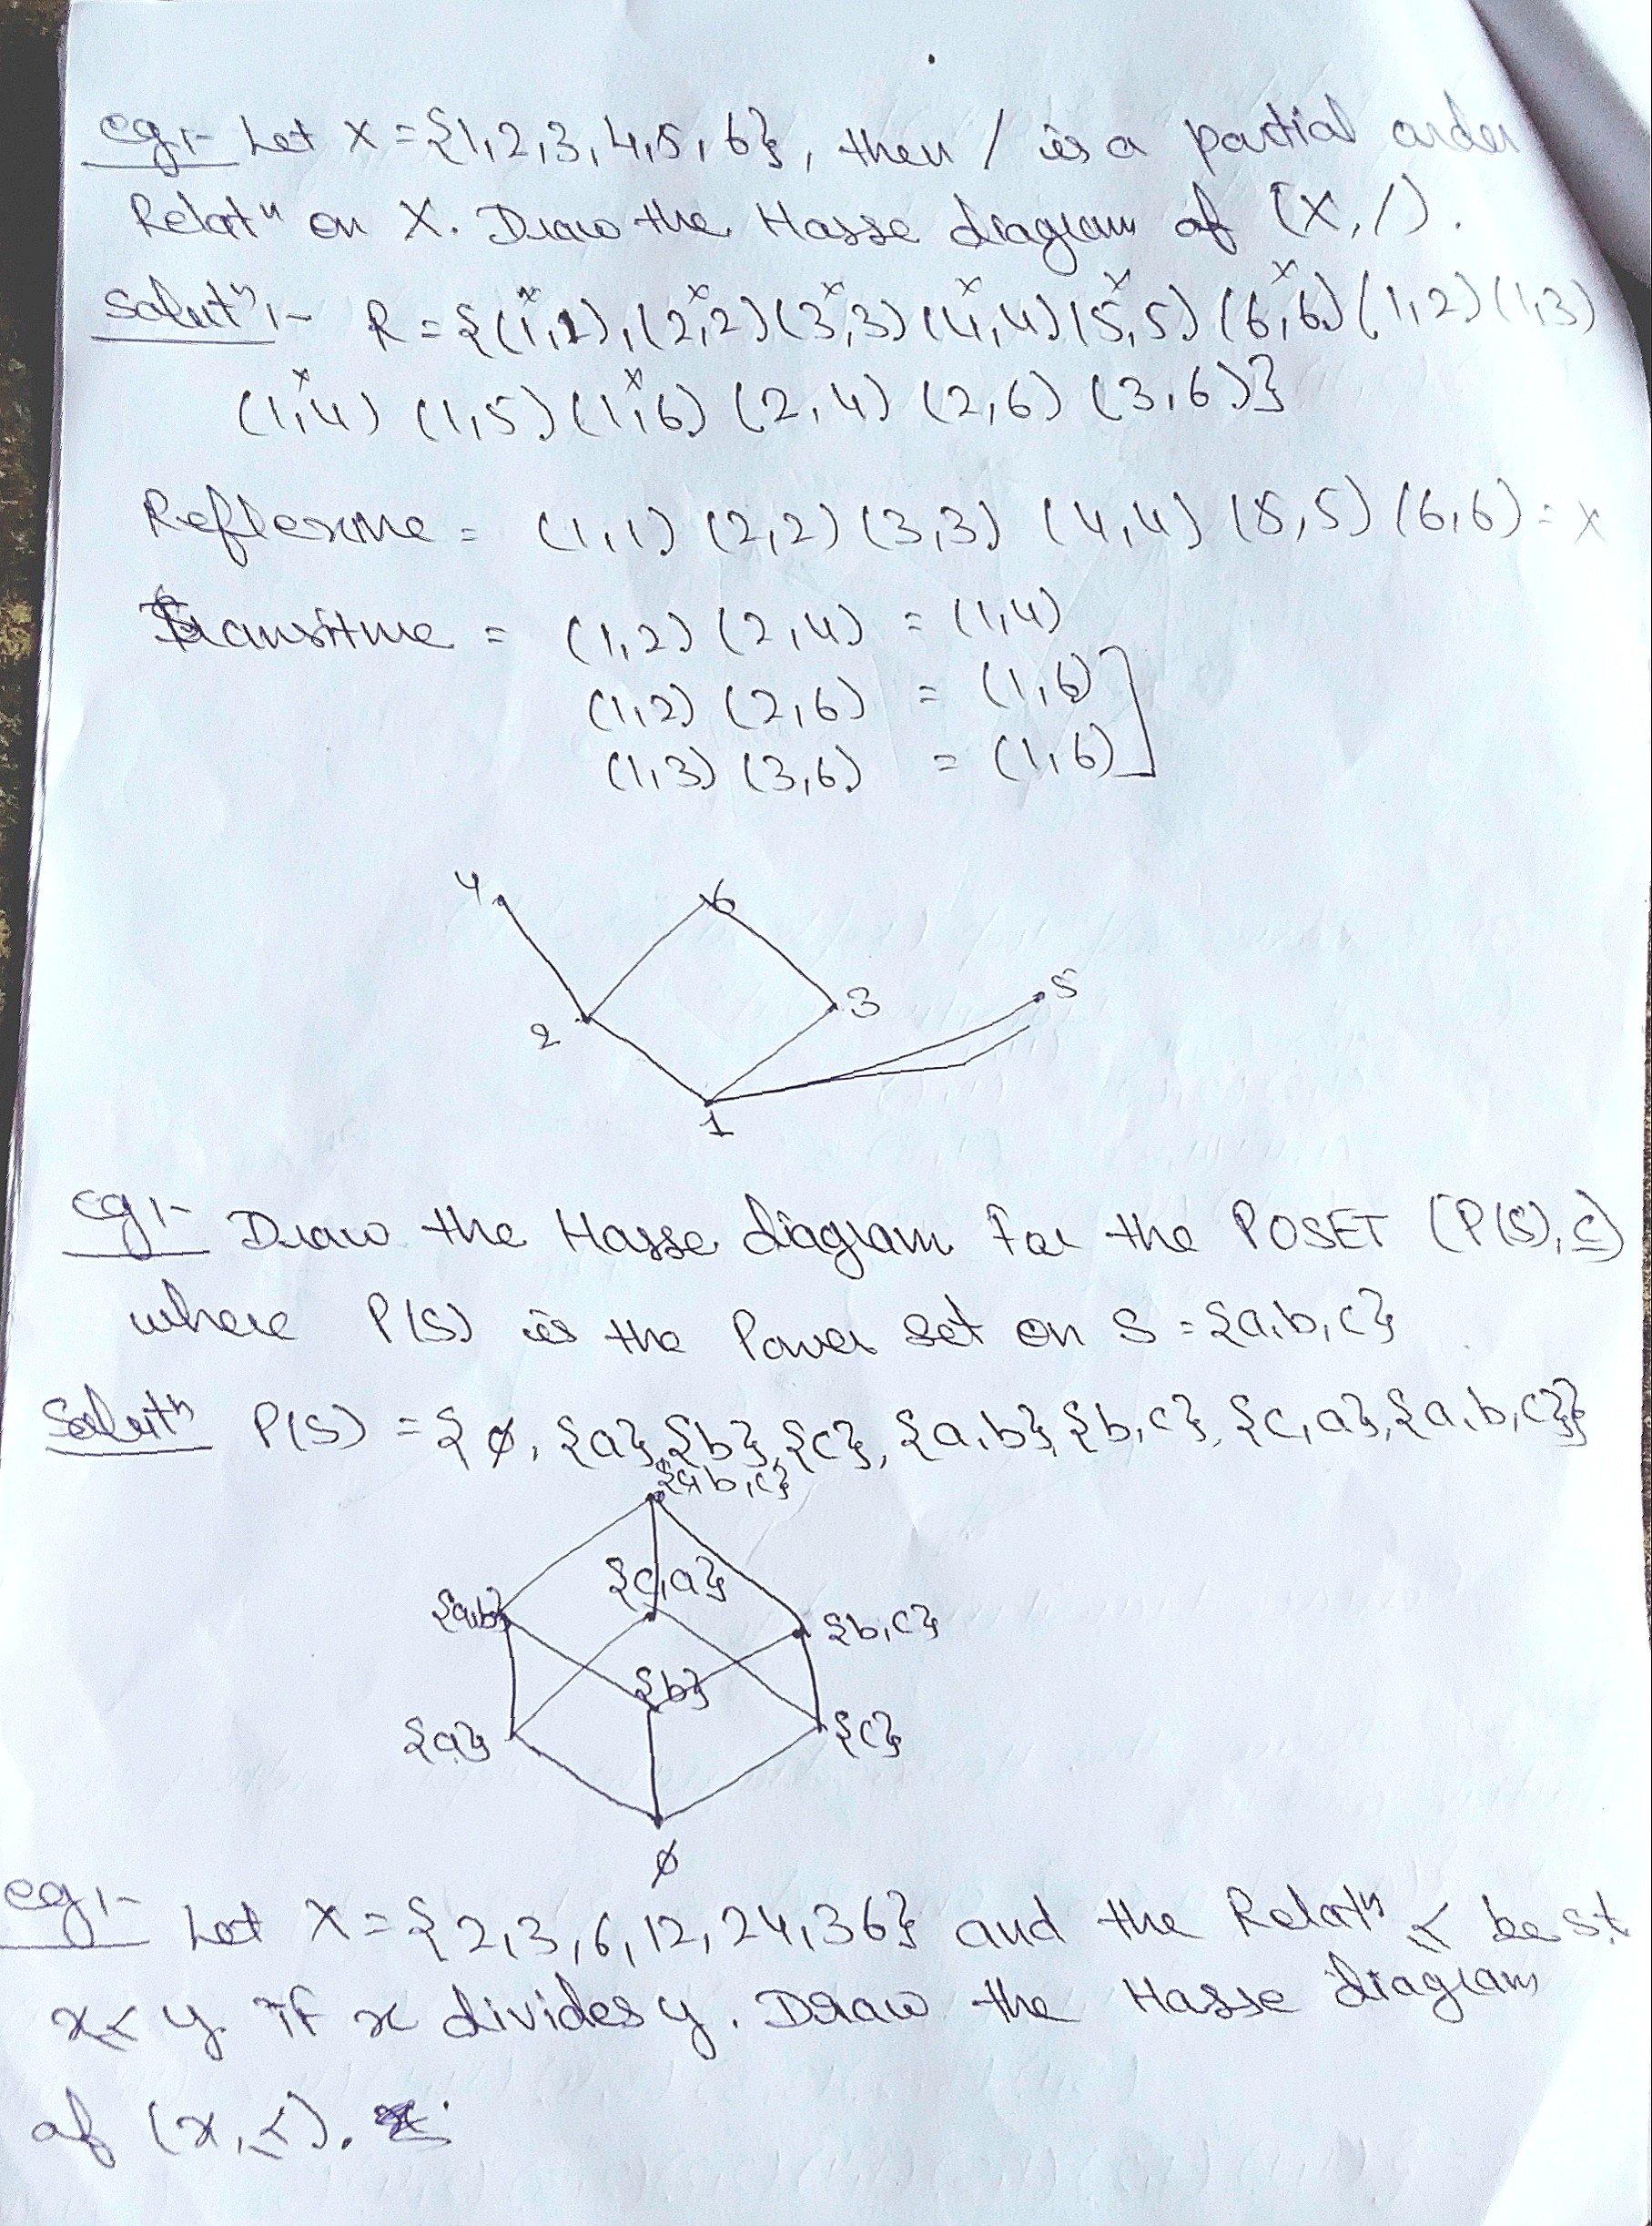 eg:- Let X = {1,2,3,4,5,6}, then / is a partial order
Relatⁿ on X. Draw the Hasse diagram of (X,/).
Solutⁿ:- R = {(1,1),(2,2)(3,3)(4,4)(5,5)(6,6)(1,2)(1,3)
(1,4) (1,5)(1,6) (2,4) (2,6) (3,6)}
Reflexive = (1,1) (2,2) (3,3) (4,4) (5,5) (6,6) = x
Transitive = (1,2) (2,4) = (1,4)
(1,2) (2,6) = (1,6)
(1,3) (3,6) = (1,6)
4 6
2 3 5
1
eg:- Draw the Hasse diagram for the POSET (P(S),⊆)
where P(S) is the Power set on S = {a,b,c}
Solutⁿ P(S) = {ø, {a},{b},{c}, {a,b},{b,c}, {c,a},{a,b,c}}
{a,b,c}
{a,b} {c,a} {b,c}
{a} {b} {c}
ø
eg:- Let X = {2,3,6,12,24,36} and the Relatⁿ ≤ be s.t
x ≤ y if x divides y. Draw the Hasse diagram
of (x,≤).